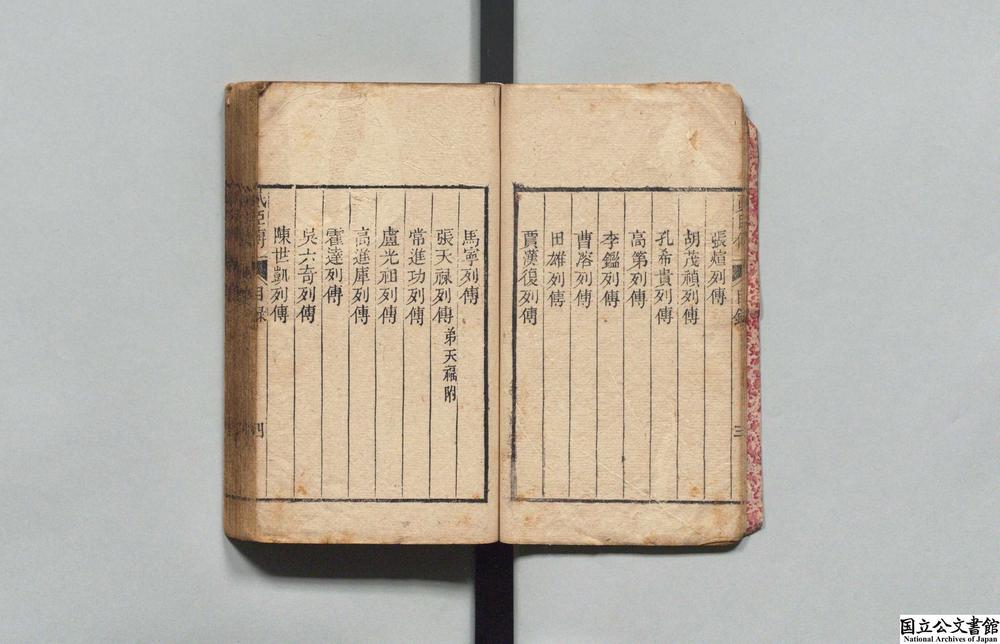 張煊列傳
胡茂禎列傳
孔希貴列傳
高第列傳
李鑑列傳
曹溶列傳
田雄列傳
賈漢復列傳
目錄
三
馬寧列傳
張天祿列傳 弟天福附
常進功列傳
盧光祖列傳
高進庫列傳
霍達列傳
吳六奇列傳
陳世凱列傳
目錄
四
国立公文書館
National Archives of Japan